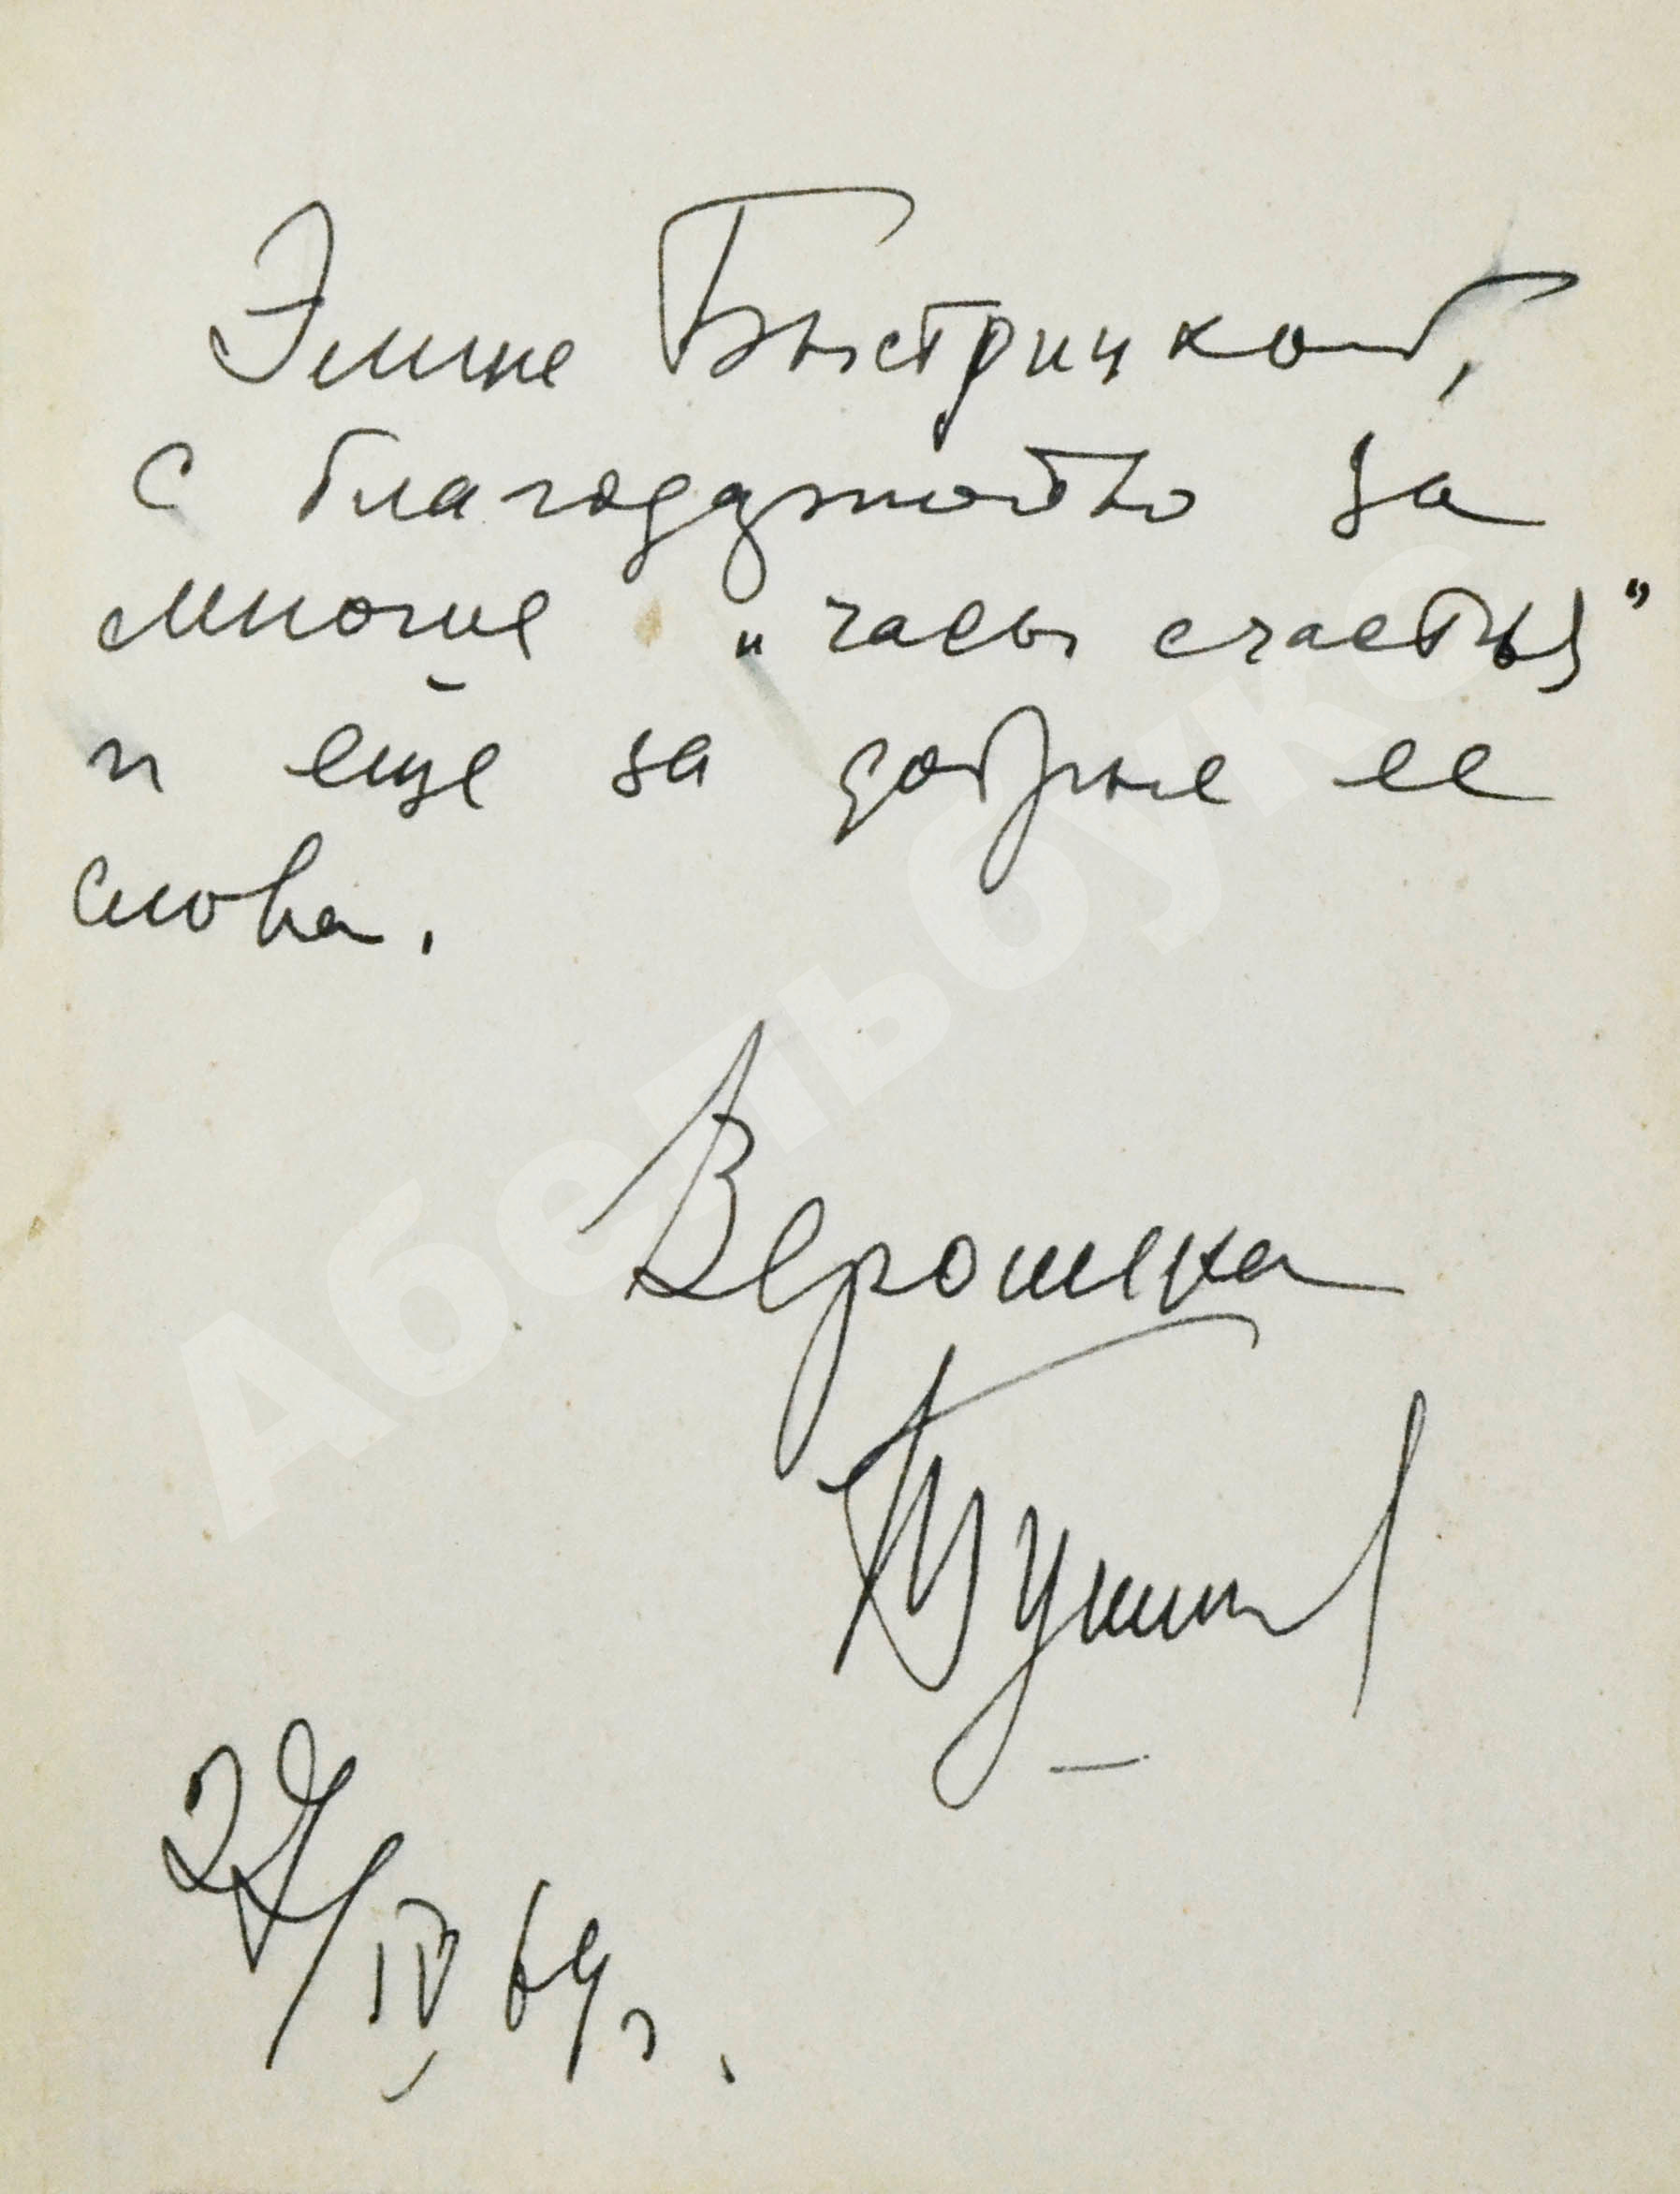 Элине Быстрицкой,
с благодарностью за
многие „часы счастья”
и еще за добрые ее
слова.
Вероника
Тушнова
IV 64 г.
Абельбукс